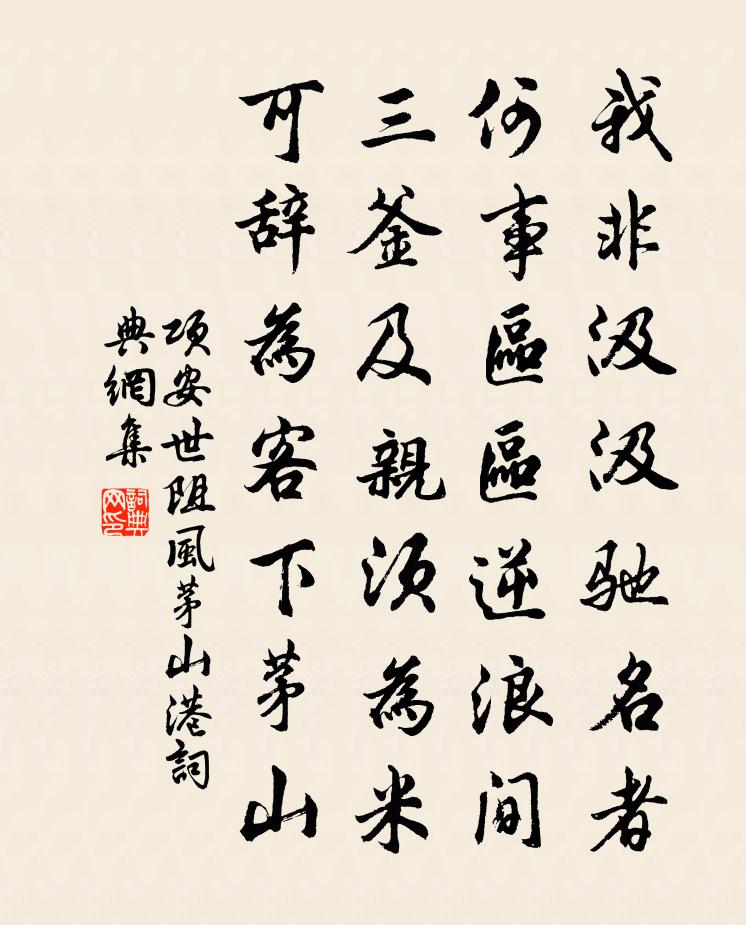 我非汲汲驰名者
何事區區逆浪间
三釜及親须為米
可辞為客下茅山
项安世阻風茅山港詞
典網集
詞典网印